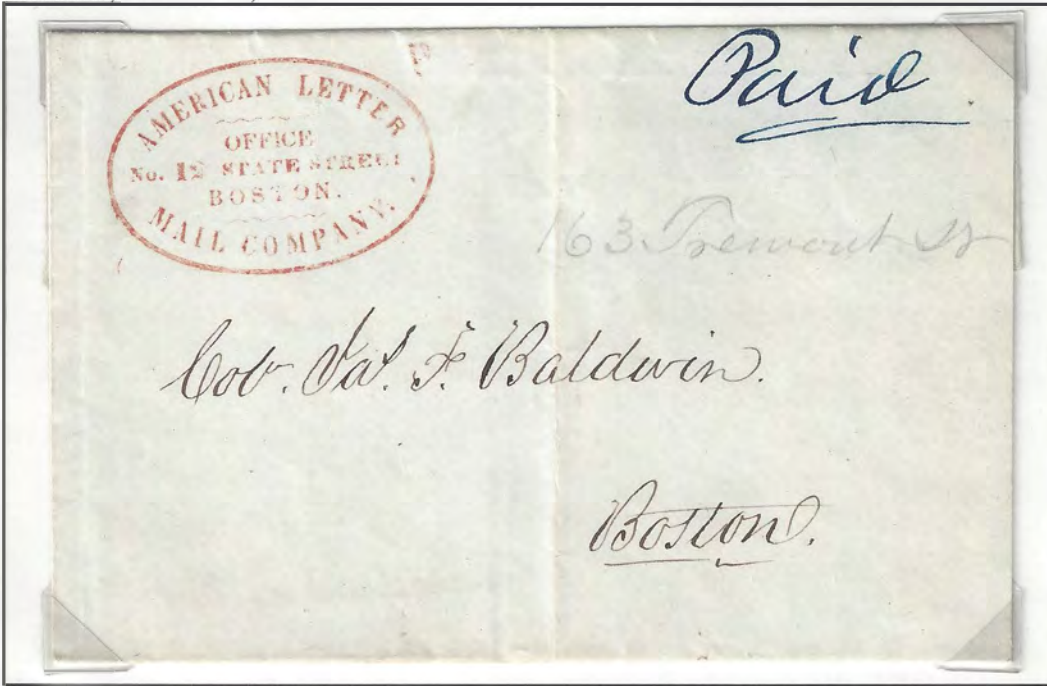 AMERICAN LETTER
OFFICE
No. 12 STATE STREET
BOSTON.
MAIL COMPANY.
Paid
163 Tremont St
Col. Jas. F. Baldwin.
Boston.